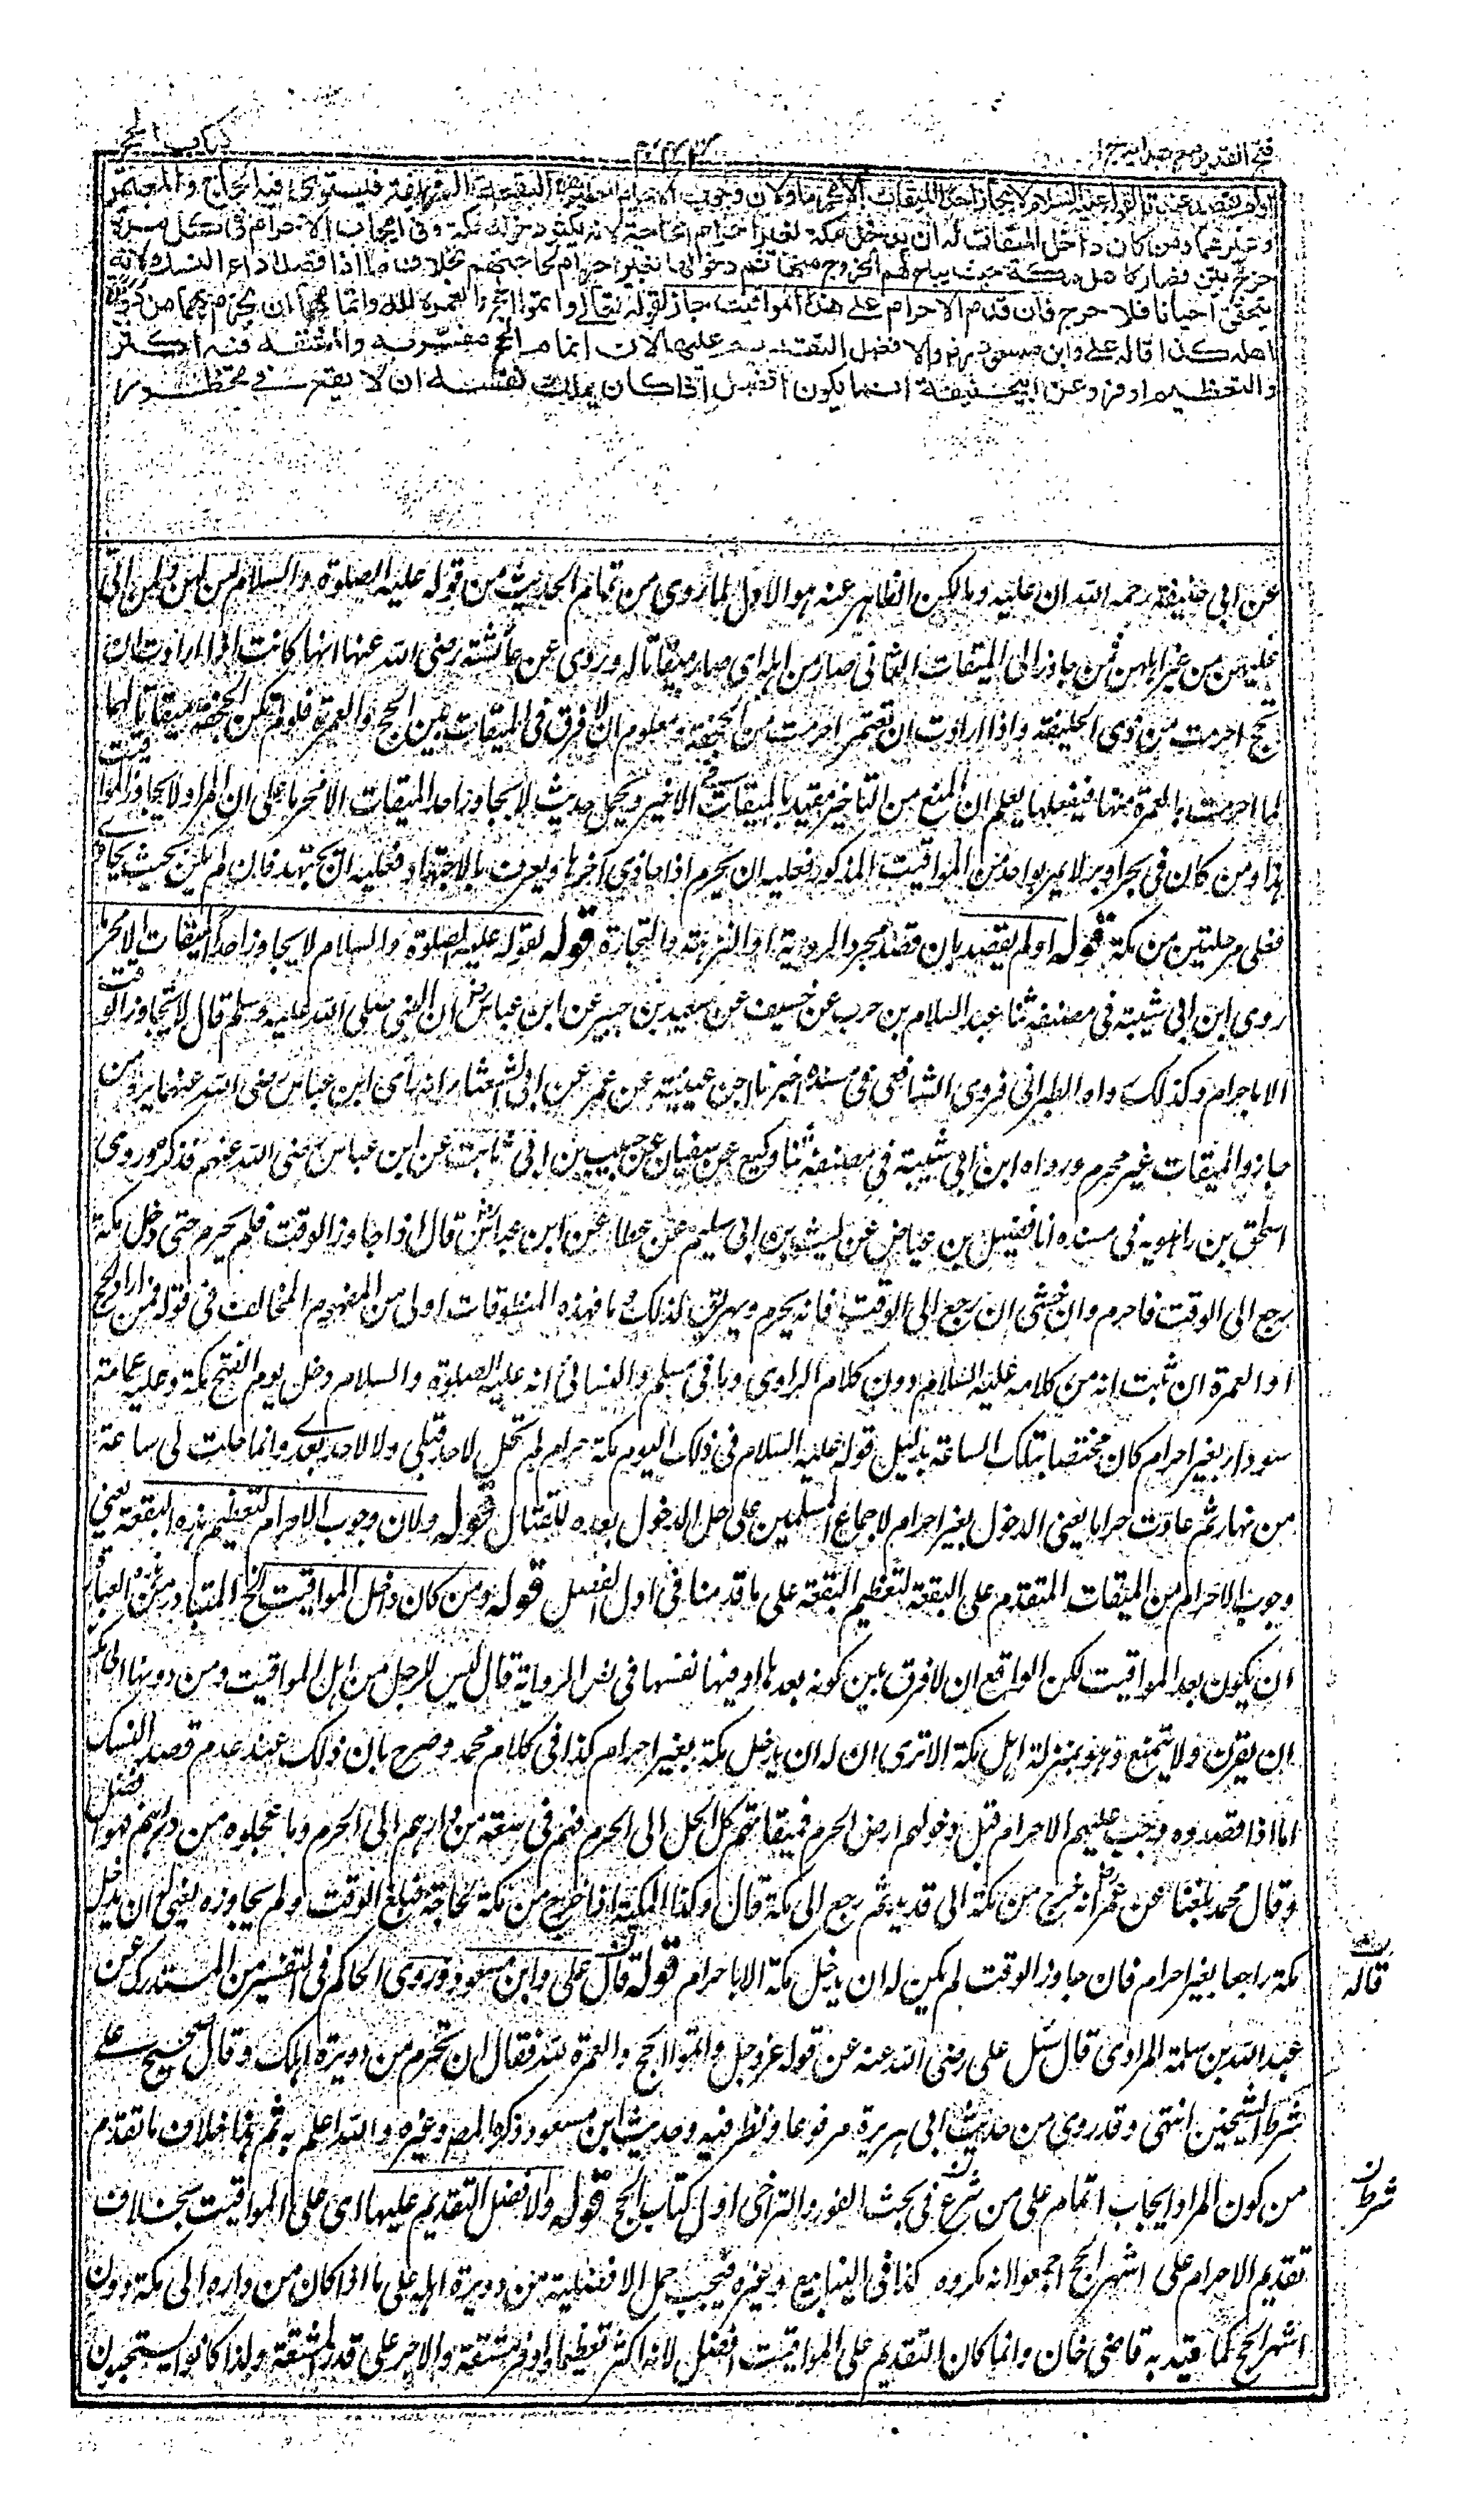 فتح القدير مع هدايه جلد ا
كتاب الحج
او لم يقصد عندنا لقوله عليه السلام لا يجاوز احد الميقات الا محرما ولان وجوب الاحرام لتعظيم هذه البقعة الشريفة فيستوي فيه الحاج والمعتمر
وغيرهما ومن كان داخل الميقات له ان يدخل مكة بغير احرام لحاجته لانه يكثر دخوله مكة وفى ايجاب الاحرام فى كل مرة
حرج بين فصار كاهل مكة حيث يباح لهم الخروج منها ثم دخولها بغير احرام لحاجتهم بخلاف ما اذا قصد اداء النسك لانه
يتحقق احيانا فلا حرج فان قدم الاحرام على هذه المواقيت جاز لقوله تعالى واتموا الحج والعمرة لله واتمامهما ان يحرم بهما من دويرة
اهله كذا قاله على وابن مسعود رض والافضل التقديم عليها لان اتمام الحج مفسر به والمشقة فيه اكثر
والتعظيم اوفر وعن ابيحنيفة انما يكون افضل اذا كان يملك نفسه ان لا يقع فى محظور
عن ابى حنيفة رحمه الله ان عليه دما لكن الظاهر عنه هو الاول لما روى من تمام الحديث من قوله عليه الصلوة والسلام هن لهن ولمن اتى
عليهن من غير اهلهن فمن جاوز الى الميقات الثانى صار من اهله اى صار ميقاتا له وروى عن عائشة رضى الله عنها انها كانت اذا ارادت ان
تحج احرمت من ذى الحليفة واذا ارادت ان تعتمر احرمت من الجحفة ومعلوم ان لا فرق فى الميقات بين الحج والعمرة فلو لم تكن الجحفة ميقاتا لهما
لما احرمت بالعمرة منها فبفعلها يعلم ان المنع من التاخير مقيد بالميقات الاخير ويحمل حديث لا يجاوز احد الميقات الا محرما على ان المراد لا يجاوز المواقيت
هذا ومن كان فى بحر او بر لا يمر بواحد من المواقيت المذكورة فعليه ان يحرم اذا حاذى آخرها ويعرف بالاجتهاد فعليه ان يجتهد فان لم يكن بحيث يحاذى
فعلى مرحلتين من مكة قوله او لم يقصد بان قصد مجرد الرؤية او النزهة والتجارة قوله لقوله عليه الصلوة والسلام لا يجاوز احد الميقات الا محرما
روى ابن ابى شيبة فى مصنفه ثنا عبد السلام بن حرب عن خصيف عن سعيد بن جبير عن ابن عباس رض ان النبى صلى الله عليه وسلم قال لا تجاوز الوقت
الا باحرام وكذلك رواه الطبرانى فروى الشافعى فى مسنده اخبرنا ابن عيينة عن عمر عن ابى الشعثاء انه راى ابن عباس رضى الله عنهما يرد من
جاوز الميقات غير محرم ورواه ابن ابى شيبة فى مصنفه ثنا وكيع عن سفيان عن حبيب بن ابى ثابت عن ابن عباس رضى الله عنهم فذكره وروى
اسحق بن راهويه فى مسنده انا فضيل بن عياض عن ليث بن ابى سليم عن عطاء عن ابن عباس رض قال اذا جاوز الوقت فلم يحرم حتى دخل مكة
رجع الى الوقت فاحرم وان خشى ان رجع الى الوقت فانه يحرم ويهريق لذلك دما فهذه المنطوقات اولى من المفهوم المخالف فى قوله فمن اراد الحج
او العمرة ان ثبت انه من كلامه عليه السلام دون كلام الراوى وما فى مسلم والنسائى انه عليه الصلوة والسلام دخل يوم الفتح مكة وعليه عمامة
سوداء بغير احرام كان مختصا بتلك الساعة بدليل قوله عليه السلام فى ذلك اليوم مكة حرام لم تحل لاحد قبلى ولا لاحد بعدى وانما حلت لى ساعة
من نهار ثم عادت حراما يعنى الدخول بغير احرام لاجماع المسلمين على حل الدخول بعده للقتال قوله ولان وجوب الاحرام لتعظيم هذه البقعة يعنى
وجوب الاحرام من الميقات المتقدم على البقعة لتعظيم البقعة على ما قدمنا فى اول الفصل قوله ومن كان داخل المواقيت الخ المتبادر من هذه العبارة
ان يكون بعد المواقيت لكن الواقع ان لا فرق بين كونه بعدها او فيها نفسها فى نص الرواية قال ليس للرجل من اهل المواقيت ومن دونها الى مكة
ان يقرن ولا يتمتع وهو بمنزلة اهل مكة الا ترى ان له ان يدخل مكة بغير احرام كذا فى كلام محمد وصرح بان ذلك عند عدم قصد النسك
اما اذا قصدوه وجب عليهم الاحرام قبل دخولهم ارض الحرم فميقاتهم كل الحل الى الحرم فهم فى سعة من دارهم الى الحرم وما عجلوه من دارهم فهو افضل
وقال محمد بلغنا عن عمر رض انه خرج من مكة الى قديد ثم رجع الى مكة قال وكذا المكى اذا خرج من مكة لحاجة فبلغ الوقت ولم يجاوزه يعنى له ان يدخل
مكة راجعا بغير احرام فان جاوز الوقت لم يكن له ان يدخل مكة الا باحرام قوله قال على وابن مسعود وروى الحاكم فى التفسير من المستدرك عن
قاله
عبد الله بن سلمة المرادى قال سئل على رضى الله عنه عن قوله عز وجل واتموا الحج والعمرة لله فقال ان تحرم من دويرة اهلك وقال صحيح على
شرط الشيخين انتهى وقد روى من حديث ابى هريرة مرفوعا ونظر فيه وحديث ابن مسعود ذكره المص وغيره والله اعلم به ثم هذا خلاف ما تقدم
من كون المراد ايجاب اتمام على من شرع فى بحث الفور والتراخى اول كتاب الحج قوله والافضل التقديم عليها اى على المواقيت بخلاف
تقديم الاحرام على اشهر الحج اجمعوا انه مكروه كذا فى الينابيع وغيره فيجب حمل الافضلية من دويرة اهله على ما اذا كان من داره الى مكة دون
اشهر الحج كما قيد به قاضى خان وانما كان التقديم على المواقيت افضل لانه اكثر تعظيما واوفر مشقة والاجر على قدر المشقة ولذا كانوا يستحبون